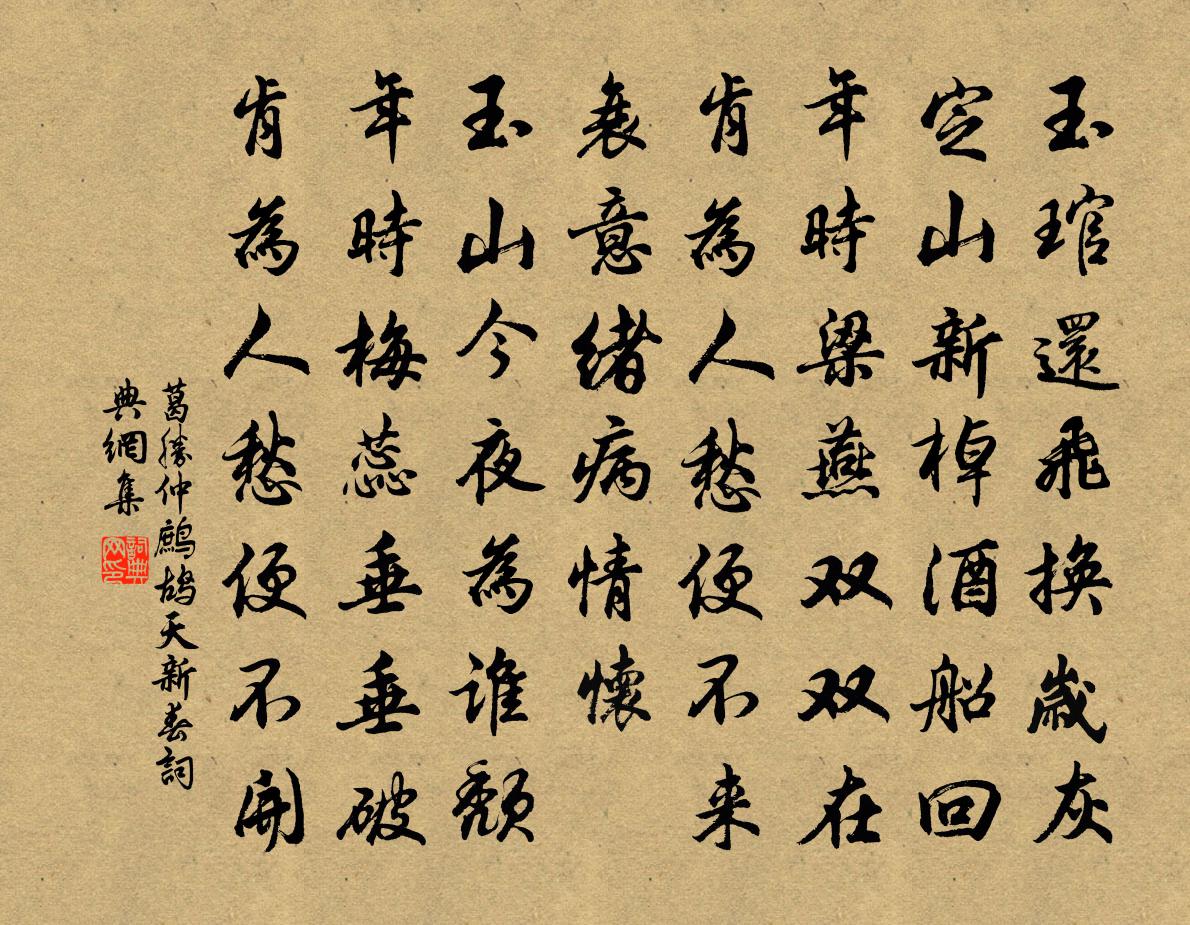 玉琯還飛換歲灰
定山新棹酒船回
年時梁燕双双在
肯為人愁便不来
衰意緒病情懷
玉山今夜為誰頹
年時梅蕊垂垂破
肯為人愁便不開
葛勝仲鷓鴣天新春詞
典網集
詞典網印